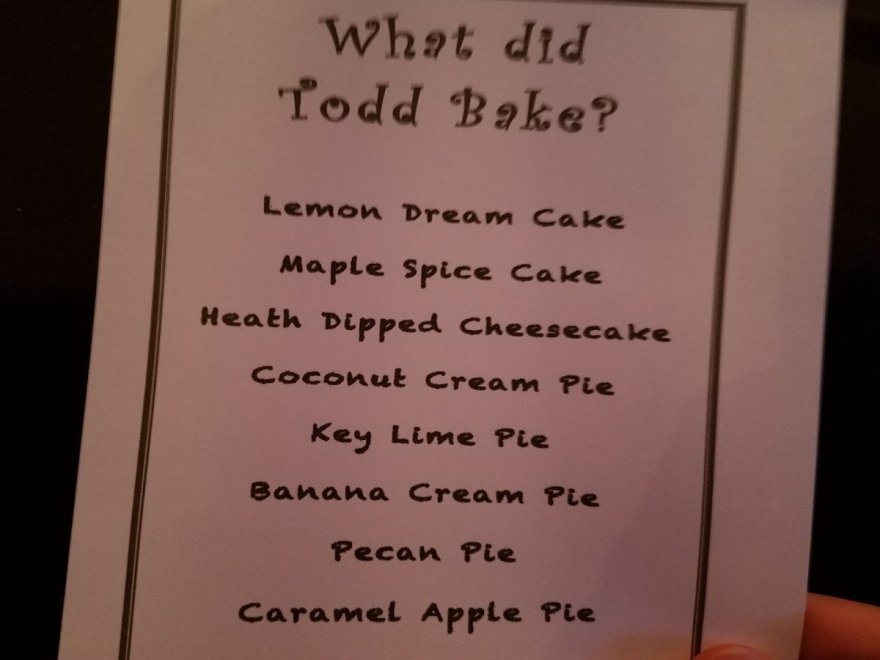 What did
Todd Bake?
Lemon Dream Cake
Maple Spice Cake
Heath Dipped Cheesecake
Coconut Cream Pie
Key Lime Pie
Banana Cream Pie
Pecan Pie
Caramel Apple Pie